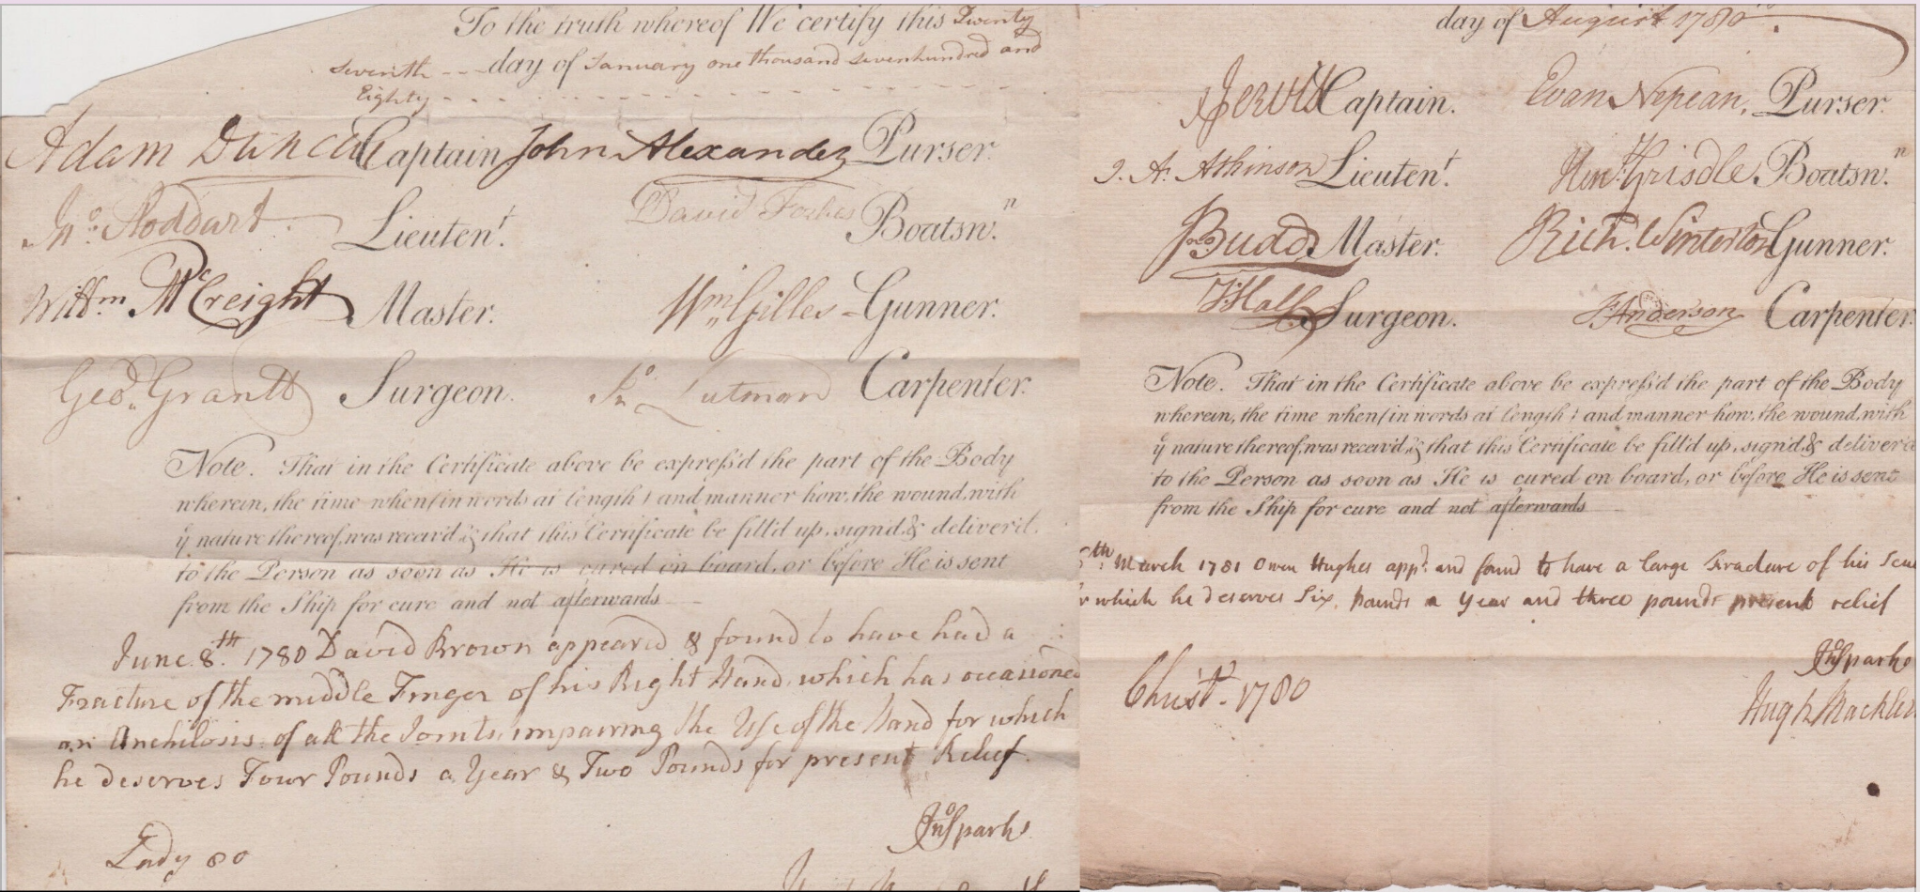 To the truth whereof We certify this Twenty
Seventh --- day of January one thousand sevenhundred and
Eighty - - - - - - - - - -
Adam Duncan Captain John Alexander Purser.
Jno. Stoddart Lieutent. David Forbes Boatswn.
Willm McCreight Master. Wm Gilles Gunner.
Geo. Grantt Surgeon. Jno Lutman Carpenter.
Note. That in the Certificate above be express'd the part of the Body
wherein, the time when (in words at length) and manner how, the wound, with
ye nature thereof, was receiv'd, & that this Certificate be fill'd up, sign'd & deliver'd
to the Person as soon as He is cured on board, or before He is sent
from the Ship for cure and not afterwards
June 8th. 1780 David Brown appeared & found to have had a
Fracture of the middle Finger of his Right Hand which has occasioned
an Anchilosis of all the Joints, impairing the Use of the Hand for which
he deserves Four Pounds a Year & Two Pounds for present Relief.
Jno Sparks
Lady 80
day of August 1780
J Jervis Captain. Evan Nepean, Purser.
J. A. Atkinson Lieutent. Heny Grisdle Boatswn.
Jno Budd Master. Richd. Winterton Gunner.
T Hall Surgeon. J Anderson Carpenter
Note. That in the Certificate above be express'd the part of the Body
wherein, the time when (in words at length) and manner how, the wound, with
ye nature thereof, was receiv'd, & that this Certificate be fill'd up, sign'd & deliver'd
to the Person as soon as He is cured on board, or before He is sent
from the Ship for cure and not afterwards
th March 1781 Owen Hughes appd. and found to have a large fracture of his
which he deserves Six, pounds a Year and three pounds present relief
Jno Sparks
Christs. 1780
Hugh Mackle